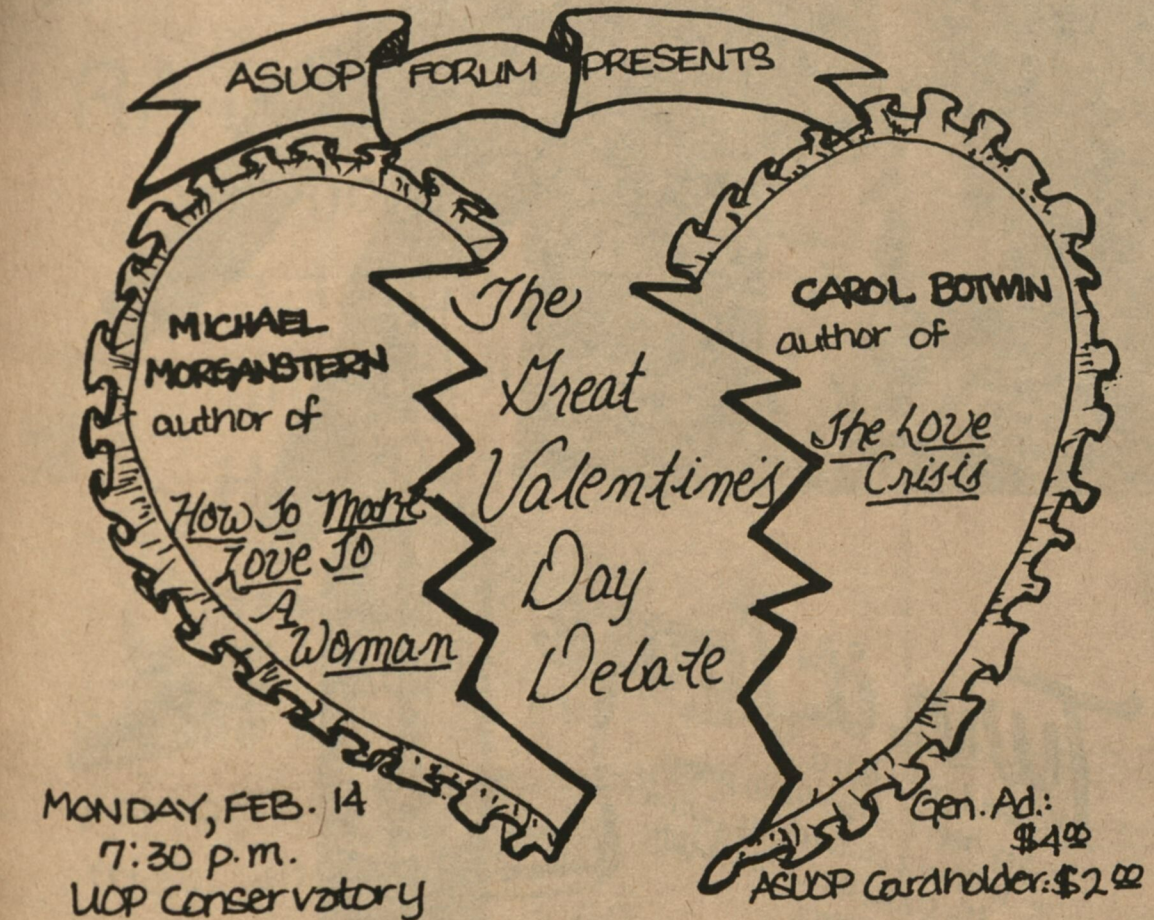 ASUOP FORUM PRESENTS
MICHAEL
MORGANSTERN
author of
How To Make
Love To
A
Woman
The
Great
Valentine's
Day
Debate
CAROL BOTWIN
author of
The Love
Crisis
MONDAY, FEB. 14
7:30 p.m.
UOP Conservatory
Gen. Ad.:
$4.00
ASUOP Cardholder: $2.00